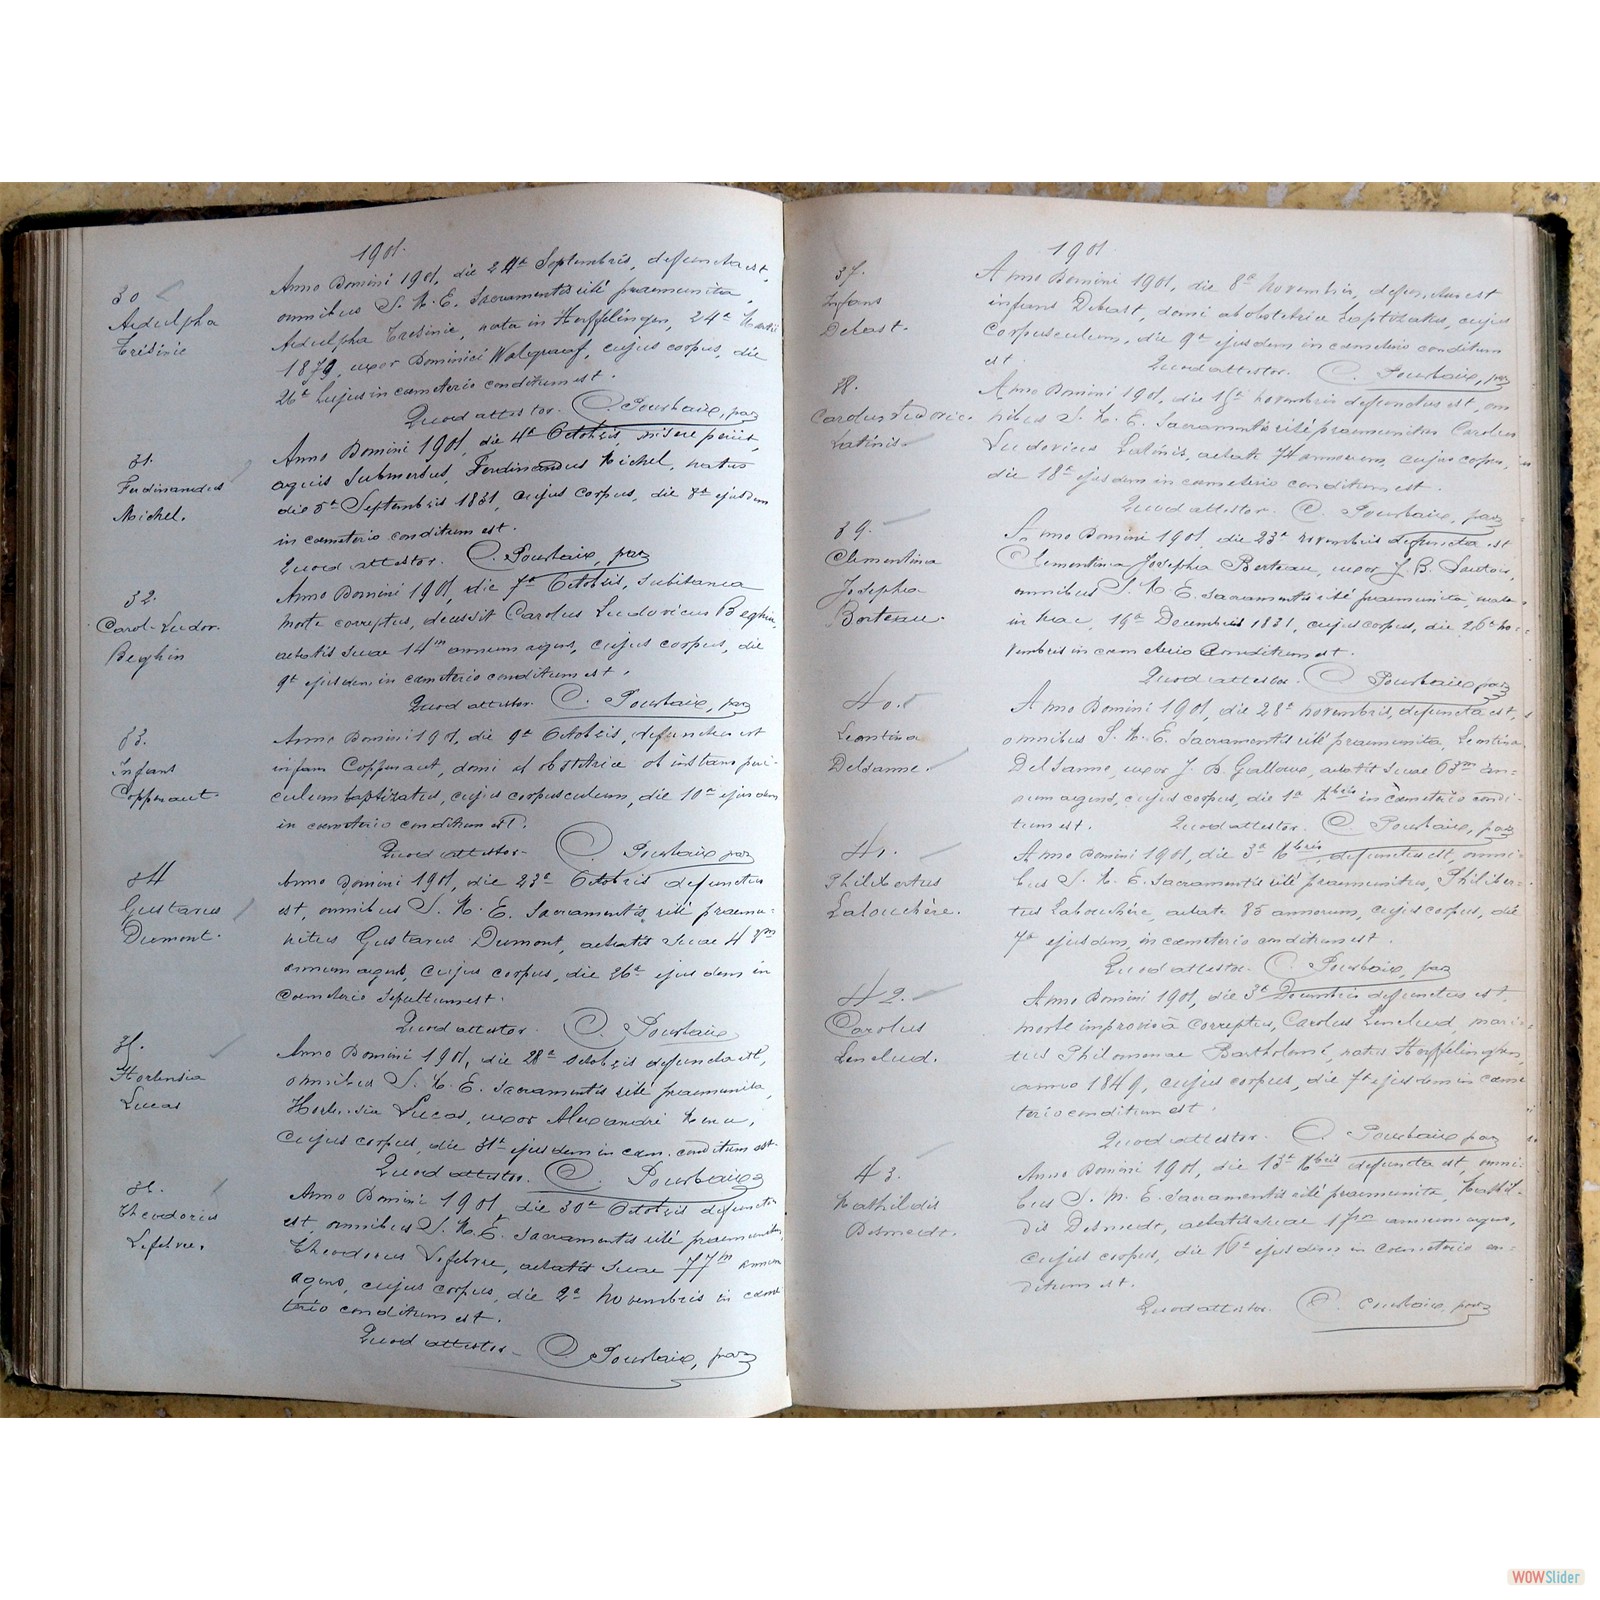 1901.
30
Adulpha
Trésinie
Anno Domini 1901, die 24ª Septembris, defuncta est,
omnibus S. M. E. Sacramentis rité praemunita,
Adulpha Trésinie, nata in Herffelingen, 24ª Martii
1879, uxor Dominici Walgraef, cujus corpus, die
26ª hujus in cœmeterio conditum est.
Quod attestor. C. Pourbaix, par
31.
Ferdinandus
Michel.
Anno Domini 1901, die 4ª Octobris, misere periit,
aquis submersus, Ferdinandus Michel, natus
die 5ª Septembris 1831, cujus corpus, die 7ª ejusdem
in cœmeterio conditum est.
Quod attestor. C. Pourbaix, par
32.
Carol-Ludov.
Beghin
Anno Domini 1901, die 7ª Octobris, subitanea
morte correptus, decessit Carolus Ludovicus Beghin,
aetatis suae 14m annum agens, cujus corpus, die
9ª ejusdem in cœmeterio conditum est.
Quod attestor. C. Pourbaix, par
33.
Infans
Coppenaut.
Anno Domini 1901, die 9ª Octobris, defunctus est
infans Coppenaut, domi ab obstetrice ob instans peri-
culum baptizatus, cujus corpusculum, die 10ª ejusdem
in cœmeterio conditum est.
Quod attestor. C. Pourbaix par
34
Gustavus
Dumont.
Anno Domini 1901, die 23ª Octobris defunctus
est, omnibus S. M. E. Sacramentis rité praemu-
nitus Gustavus Dumont, aetatis suae 43m
annum agens, cujus corpus, die 26ª ejusdem in
Cœmeterio sepultum est.
Quod attestor. C. Pourbaix
35.
Hortensia
Lucas
Anno Domini 1901, die 28ª Octobris defuncta est,
omnibus S. M. E. Sacramentis rité praemunita,
Hortensia Lucas, uxor Alexandri
cujus corpus, die 31ª ejusdem in cœm. conditum est.
Quod attestor. C. Pourbaix
36.
Theodorus
Lefebvre.
Anno Domini 1901, die 30ª Octobris defunctus
est, omnibus S. M. E. Sacramentis rité praemunitus,
Theodorus Lefebvre, aetatis suae 77m annum
agens, cujus corpus, die 2ª Novembris in cœme
terio conditum est.
Quod attestor. C. Pourbaix, par
1901
37.
Infans
Debast.
Anno Domini 1901, die 8ª Novembris, defunctus est
infans Debast, domi ab obstetrice baptizatus, cujus
corpusculum, die 9ª ejusdem in cœmeterio conditum
est. Quod attestor. C. Pourbaix, par
38.
Carolus Ludovic.
Latinis
Anno Domini 1901, die 15ª Novembris defunctus est, om
nibus S. M. E. Sacramentis rité praemunitus Carolus
Ludovicus Latinis, aetate 74 annorum, cujus corpus,
die 18ª ejusdem in cœmeterio conditum est.
Quod attestor. C. Pourbaix, par
39.
Clementina
Josephia
Berteau.
Anno Domini 1901, die 23ª Novembris defuncta est
Clementina Josephia Berteau, uxor J. B.
omnibus S. M. E. Sacramentis rité praemunita, nata
in hac, 19ª Decembris 1831, cujus corpus, die 26ª no-
vembris in cœmeterio conditum est.
Quod attestor. C. Pourbaix par
40.
Leontina
Delsanne.
Anno Domini 1901, die 28ª Novembris, defuncta est,
omnibus S. M. E. Sacramentis rité praemunita, Leontina
Delsanne, uxor J. B. Galloux, aetatis suae 63m an-
num agens, cujus corpus, die 1ª Xbris in cœmeterio condi-
tum est. Quod attestor. C. Pourbaix, par
41.
Philibertus
Labouchère.
Anno Domini 1901, die 3ª Xbris, defunctus est, omni-
bus S. M. E. Sacramentis rité praemunitus, Philiber-
tus Labouchère, aetate 85 annorum, cujus corpus, die
7ª ejusdem, in cœmeterio conditum est.
Quod attestor. C. Pourbaix, par
42.
Carolus
Lenclud.
Anno Domini 1901, die 3ª Decembris defunctus est,
morte improvisâ correptus, Carolus Lenclud, mari-
tus Philomenae Bartholomé, natus Herffelinghen,
anno 1849, cujus corpus, die 7ª ejusdem in cœme
terio conditum est.
Quod attestor. C. Pourbaix par
43.
Mathildis
Desmedt.
Anno Domini 1901, die 13ª Xbris defuncta est, omni-
bus S. M. E. Sacramentis rité praemunita, Mathil-
dis Desmedt, aetatis suae 17m annum agens,
cujus corpus, die 16ª ejusdem in cœmeterio con-
ditum est.
Quod attestor. C. Pourbaix, par
WOWSlider